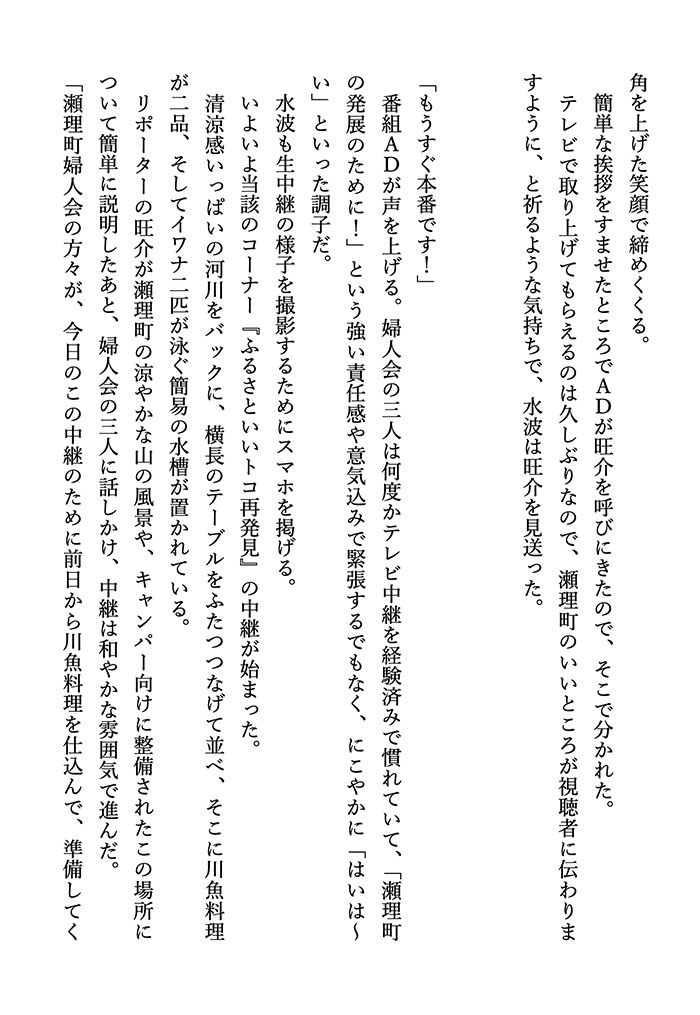 角を上げた笑顔で締めくくる。
簡単な挨拶をすませたところでＡＤが旺介を呼びにきたので、そこで分かれた。
テレビで取り上げてもらえるのは久しぶりなので、瀬理町のいいところが視聴者に伝わりま
すように、と祈るような気持ちで、水波は旺介を見送った。
「もうすぐ本番です！」
番組ＡＤが声を上げる。婦人会の三人は何度かテレビ中継を経験済みで慣れていて、「瀬理町
の発展のために！」という強い責任感や意気込みで緊張するでもなく、にこやかに「はいは～
い」といった調子だ。
水波も生中継の様子を撮影するためにスマホを掲げる。
いよいよ当該のコーナー『ふるさといいトコ再発見』の中継が始まった。
清涼感いっぱいの河川をバックに、横長のテーブルをふたつつなげて並べ、そこに川魚料理
が二品、そしてイワナ二匹が泳ぐ簡易の水槽が置かれている。
リポーターの旺介が瀬理町の涼やかな山の風景や、キャンパー向けに整備されたこの場所に
ついて簡単に説明したあと、婦人会の三人に話しかけ、中継は和やかな雰囲気で進んだ。
「瀬理町婦人会の方々が、今日のこの中継のために前日から川魚料理を仕込んで、準備してく